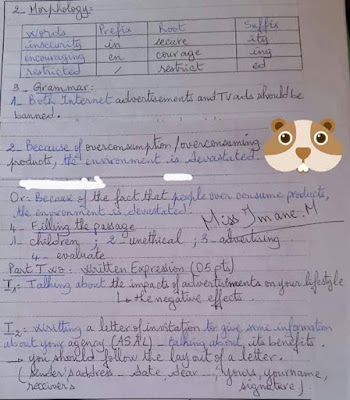 2- Morphology:
words | Prefix | Root | Suffix
insecurity | in | secure | ity
encouraging | en | courage | ing
restricted | / | restrict | ed
3- Grammar:
1- Both Internet advertisements and TV ads should be
banned.
2- Because of overconsumption / overconsuming
products, the environment is devastated.
Or: Because of the fact that people over consume products,
the environment is devastated.
Miss Imane.M
4- Filling the passage
1- children ; 2- unethical ; 3- advertising
4- evaluate
Part Two: Written Expression (05 pts)
I1: Talking about the impacts of advertisements on your lifestyle
↳ the negative effects.
I2: Writting a letter of invitation to give some information
about your agency (ASAL) - talking about its benefits.
→ you should follow the lay out of a letter.
( sender's address - date, dear ..., yours, your name,
receiver's signature )